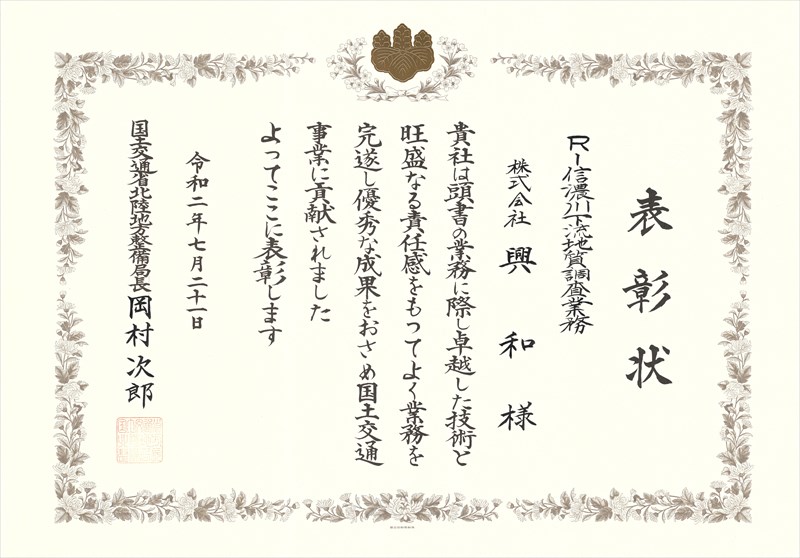 表彰状
R1信濃川下流地質調査業務
株式会社 興和 様
貴社は頭書の業務に際し卓越した技術と
旺盛なる責任感をもつてよく業務を
完遂し優秀な成果をおさめ国土交通
事業に貢献されました
よってここに表彰します
令和二年七月二十一日
国土交通省北陸地方整備局長 岡村次郎